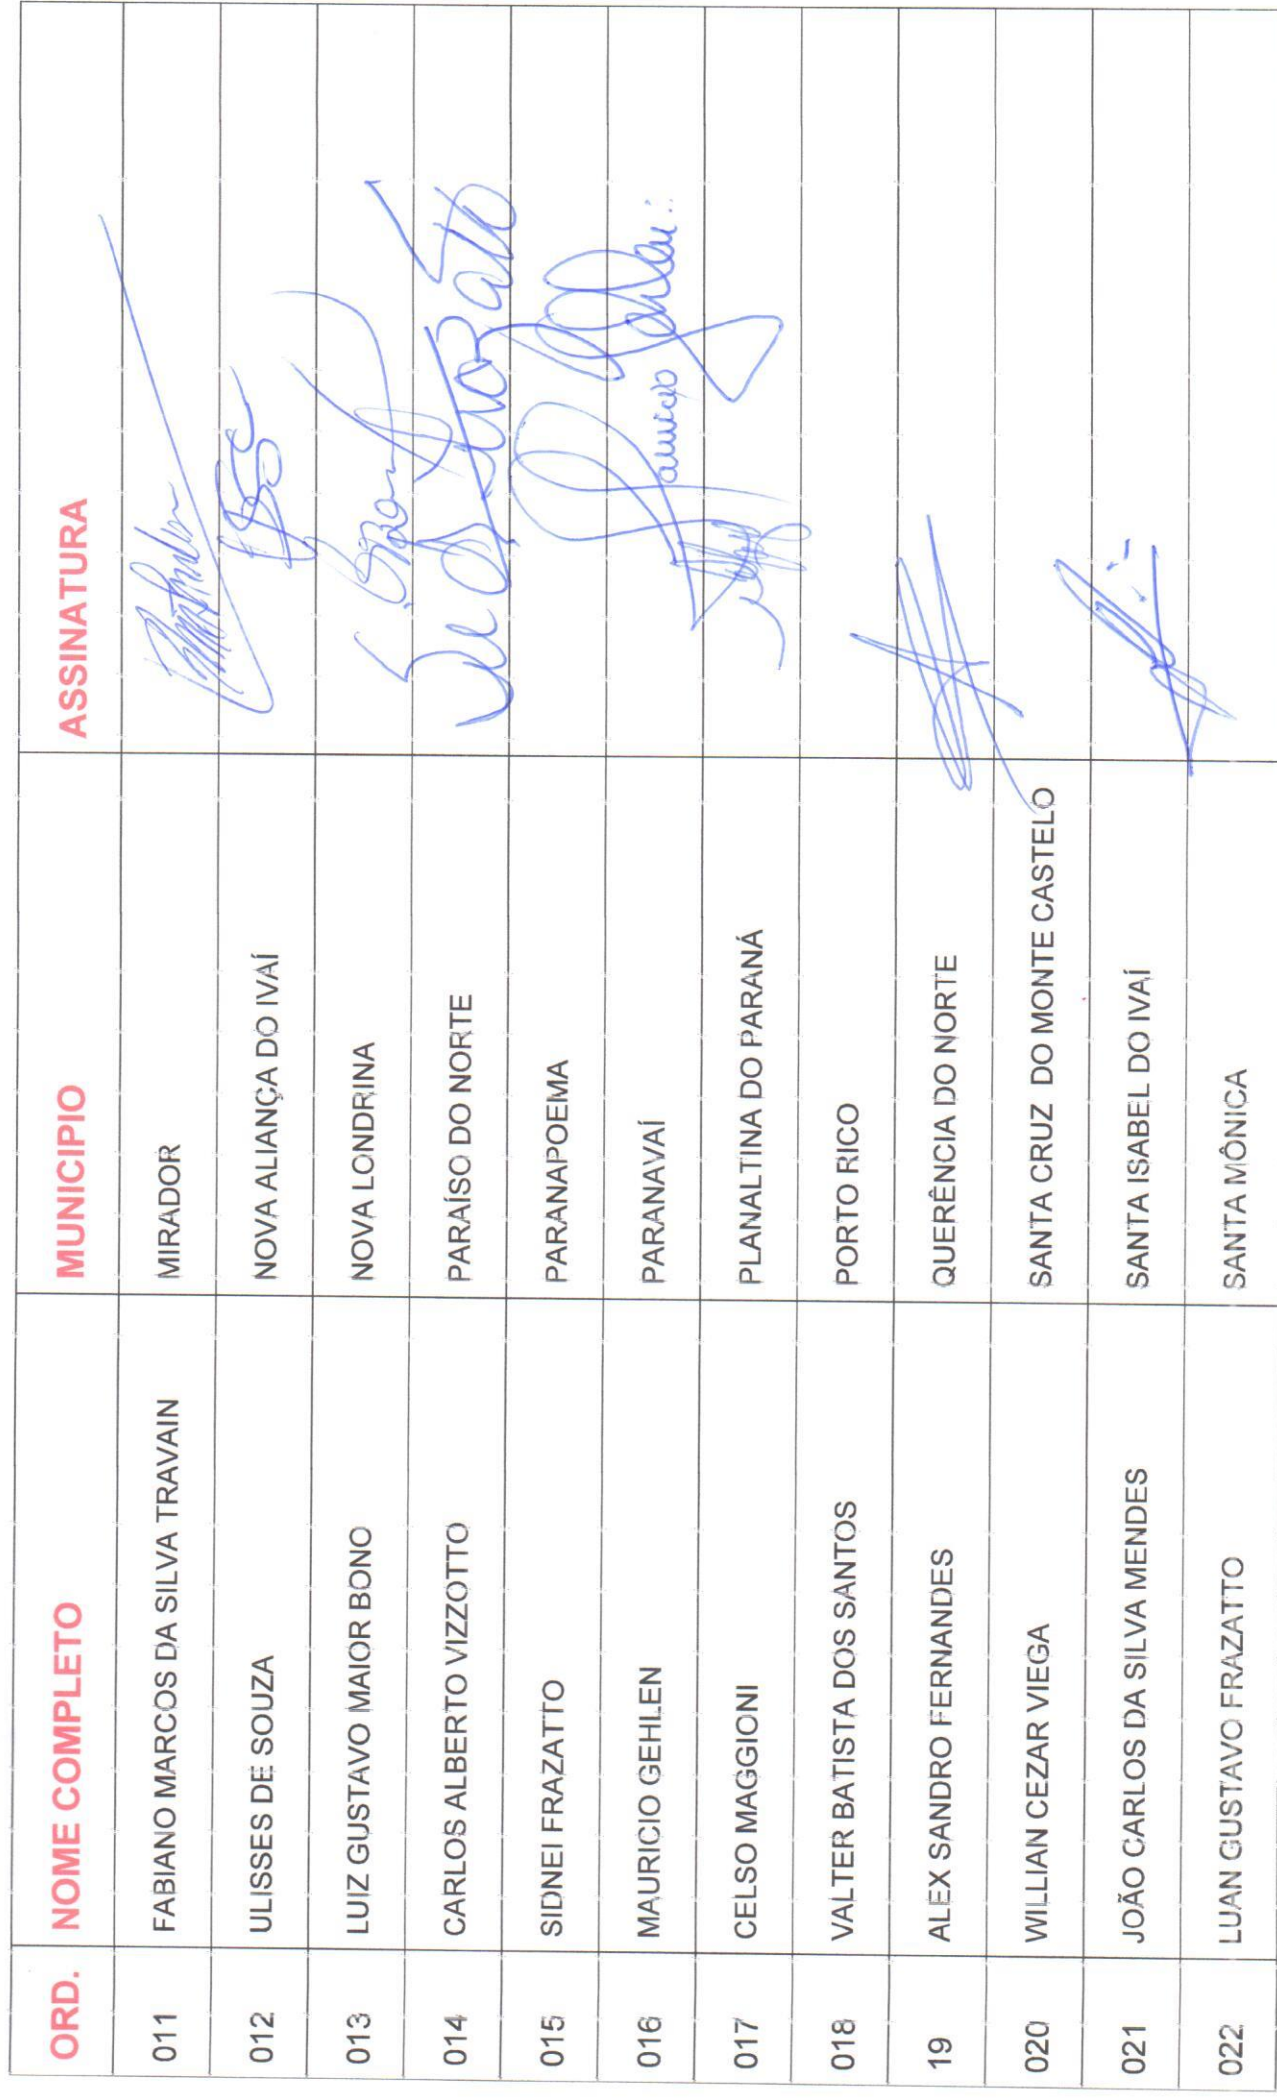 ORD. NOME COMPLETO MUNICIPIO ASSINATURA
011 FABIANO MARCOS DA SILVA TRAVAIN MIRADOR
012 ULISSES DE SOUZA NOVA ALIANÇA DO IVAÍ
013 LUIZ GUSTAVO MAIOR BONO NOVA LONDRINA
014 CARLOS ALBERTO VIZZOTTO PARAÍSO DO NORTE
015 SIDNEI FRAZATTO PARANAPOEMA
016 MAURICIO GEHLEN PARANAVAÍ
017 CELSO MAGGIONI PLANALTINA DO PARANÁ
018 VALTER BATISTA DOS SANTOS PORTO RICO
19 ALEX SANDRO FERNANDES QUERÊNCIA DO NORTE
020 WILLIAN CEZAR VIEGA SANTA CRUZ DO MONTE CASTELO
021 JOÃO CARLOS DA SILVA MENDES SANTA ISABEL DO IVAÍ
022 LUAN GUSTAVO FRAZATTO SANTA MÔNICA